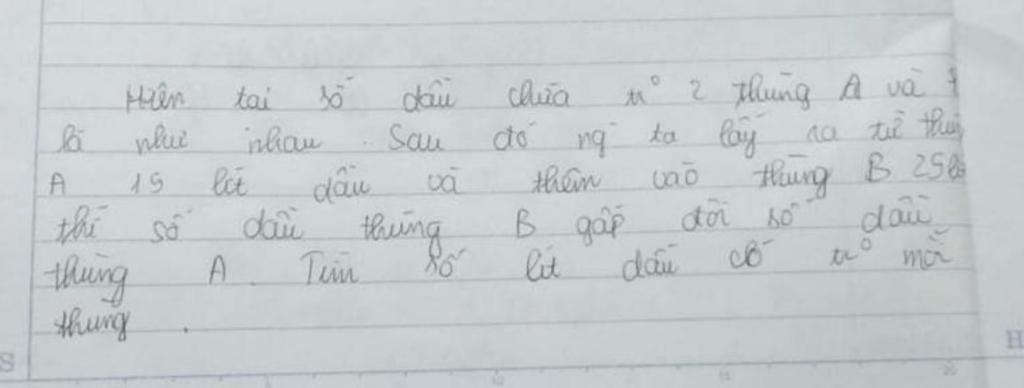 Hiện tại số dầu chứa trº 2 thùng A và
là như nhau. Sau đó ng ta lấy ra từ
A 15 lít dầu và thêm vào thùng B 25
thì số dầu thùng B gấp đôi số dầu
thùng A. Tìm số lít dầu có trº mỗi
thùng.